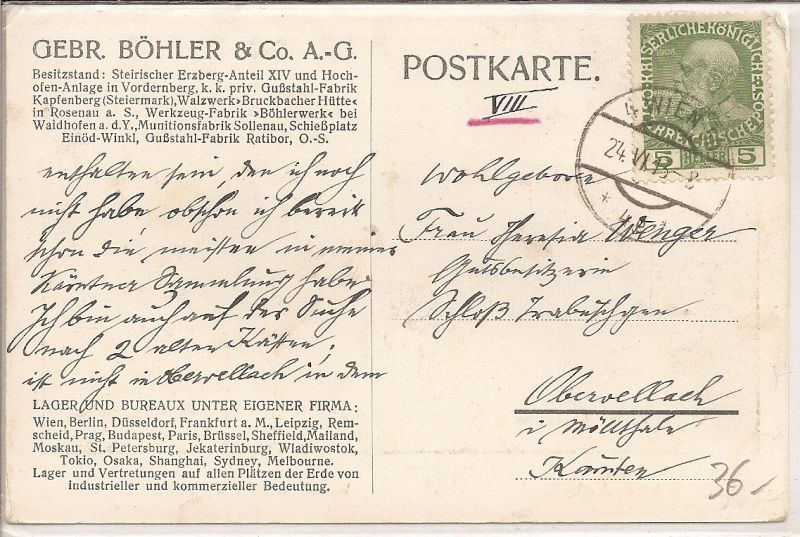 GEBR. BÖHLER & Co. A.-G.
Besitzstand: Steirischer Erzberg-Anteil XIV und Hoch-
ofen-Anlage in Vordernberg, k. k. priv. Gußstahl-Fabrik
Kapfenberg (Steiermark), Walzwerk »Bruckbacher Hütte«
in Rosenau a. S., Werkzeug-Fabrik »Böhlerwerk« bei
Waidhofen a. d. Y., Munitionsfabrik Sollenau, Schießplatz
Einöd-Winkl, Gußstahl-Fabrik Ratibor, O.-S.
enthalten sein, den ich noch
nicht habe, obschon ich bereits
schon die meisten in meiner
Kärntner Sammlung habe.
Ich bin auch auf der Suche
nach 2 alten Kästen,
ist nicht in Obervellach in dem
LAGER UND BUREAUX UNTER EIGENER FIRMA:
Wien, Berlin, Düsseldorf, Frankfurt a. M., Leipzig, Rem-
scheid, Prag, Budapest, Paris, Brüssel, Sheffield, Mailand,
Moskau, St. Petersburg, Jekaterinburg, Wladiwostok,
Tokio, Osaka, Shanghai, Sydney, Melbourne.
Lager und Vertretungen auf allen Plätzen der Erde von
industrieller und kommerzieller Bedeutung.
POSTKARTE.
VIII
4 WIEN
24.VI.13-8
5 HELLER 5
Wohlgeboren
Frau Theresia Wenger
Gutsbesitzerin
Schloß Trabuschgen
Obervellach
i Möllthale
Kärnten
36.-